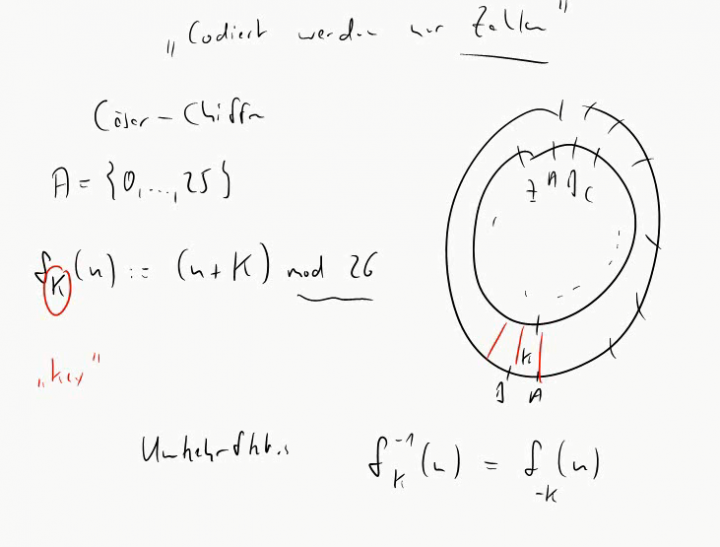 „Codiert werden nur Zahlen"
Cäsar-Chiffre
A = {0,...,25}
Z A B C
f_K(n) := (n+K) mod 26
K
„key"
B A
f_K^{-1}(n) = f_{-K}(n)